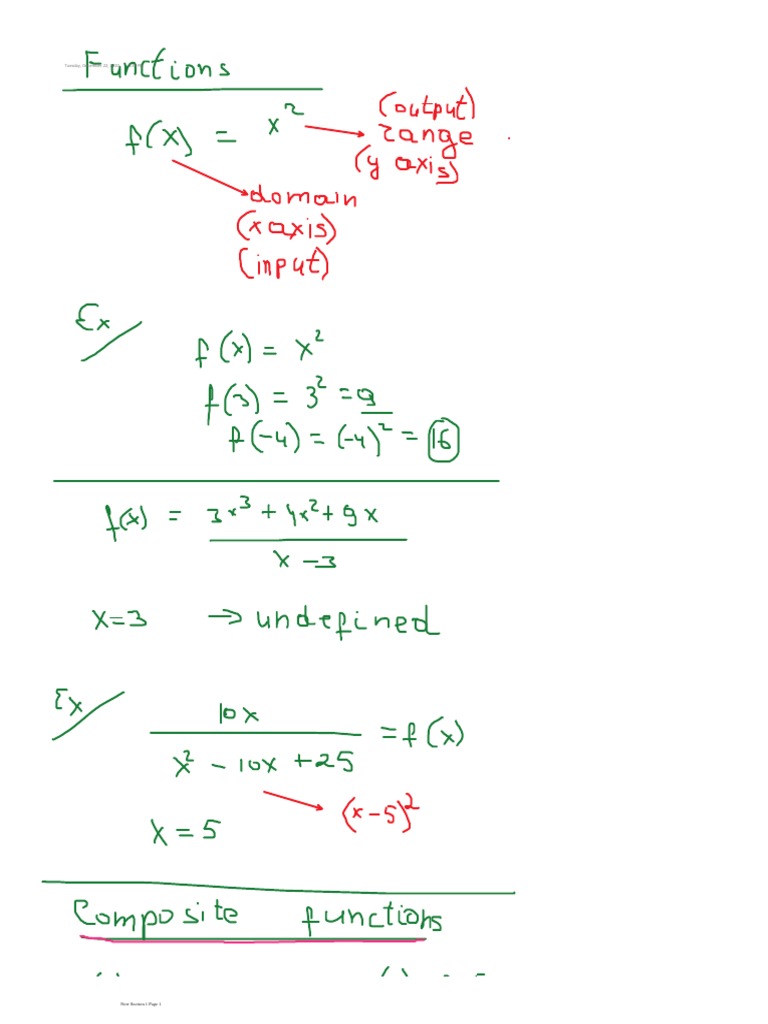 Functions
f(x) = x²
(output)
range
(y axis)
domain
(x axis)
(input)
Ex
f(x) = x²
f(3) = 3² = 9
f(-4) = (-4)² = 16
f(x) = 3x³ + 4x² + 9x
x - 3
x=3 → undefined
Ex
10x
= f(x)
x² - 10x + 25
(x-5)²
x = 5
Composite functions